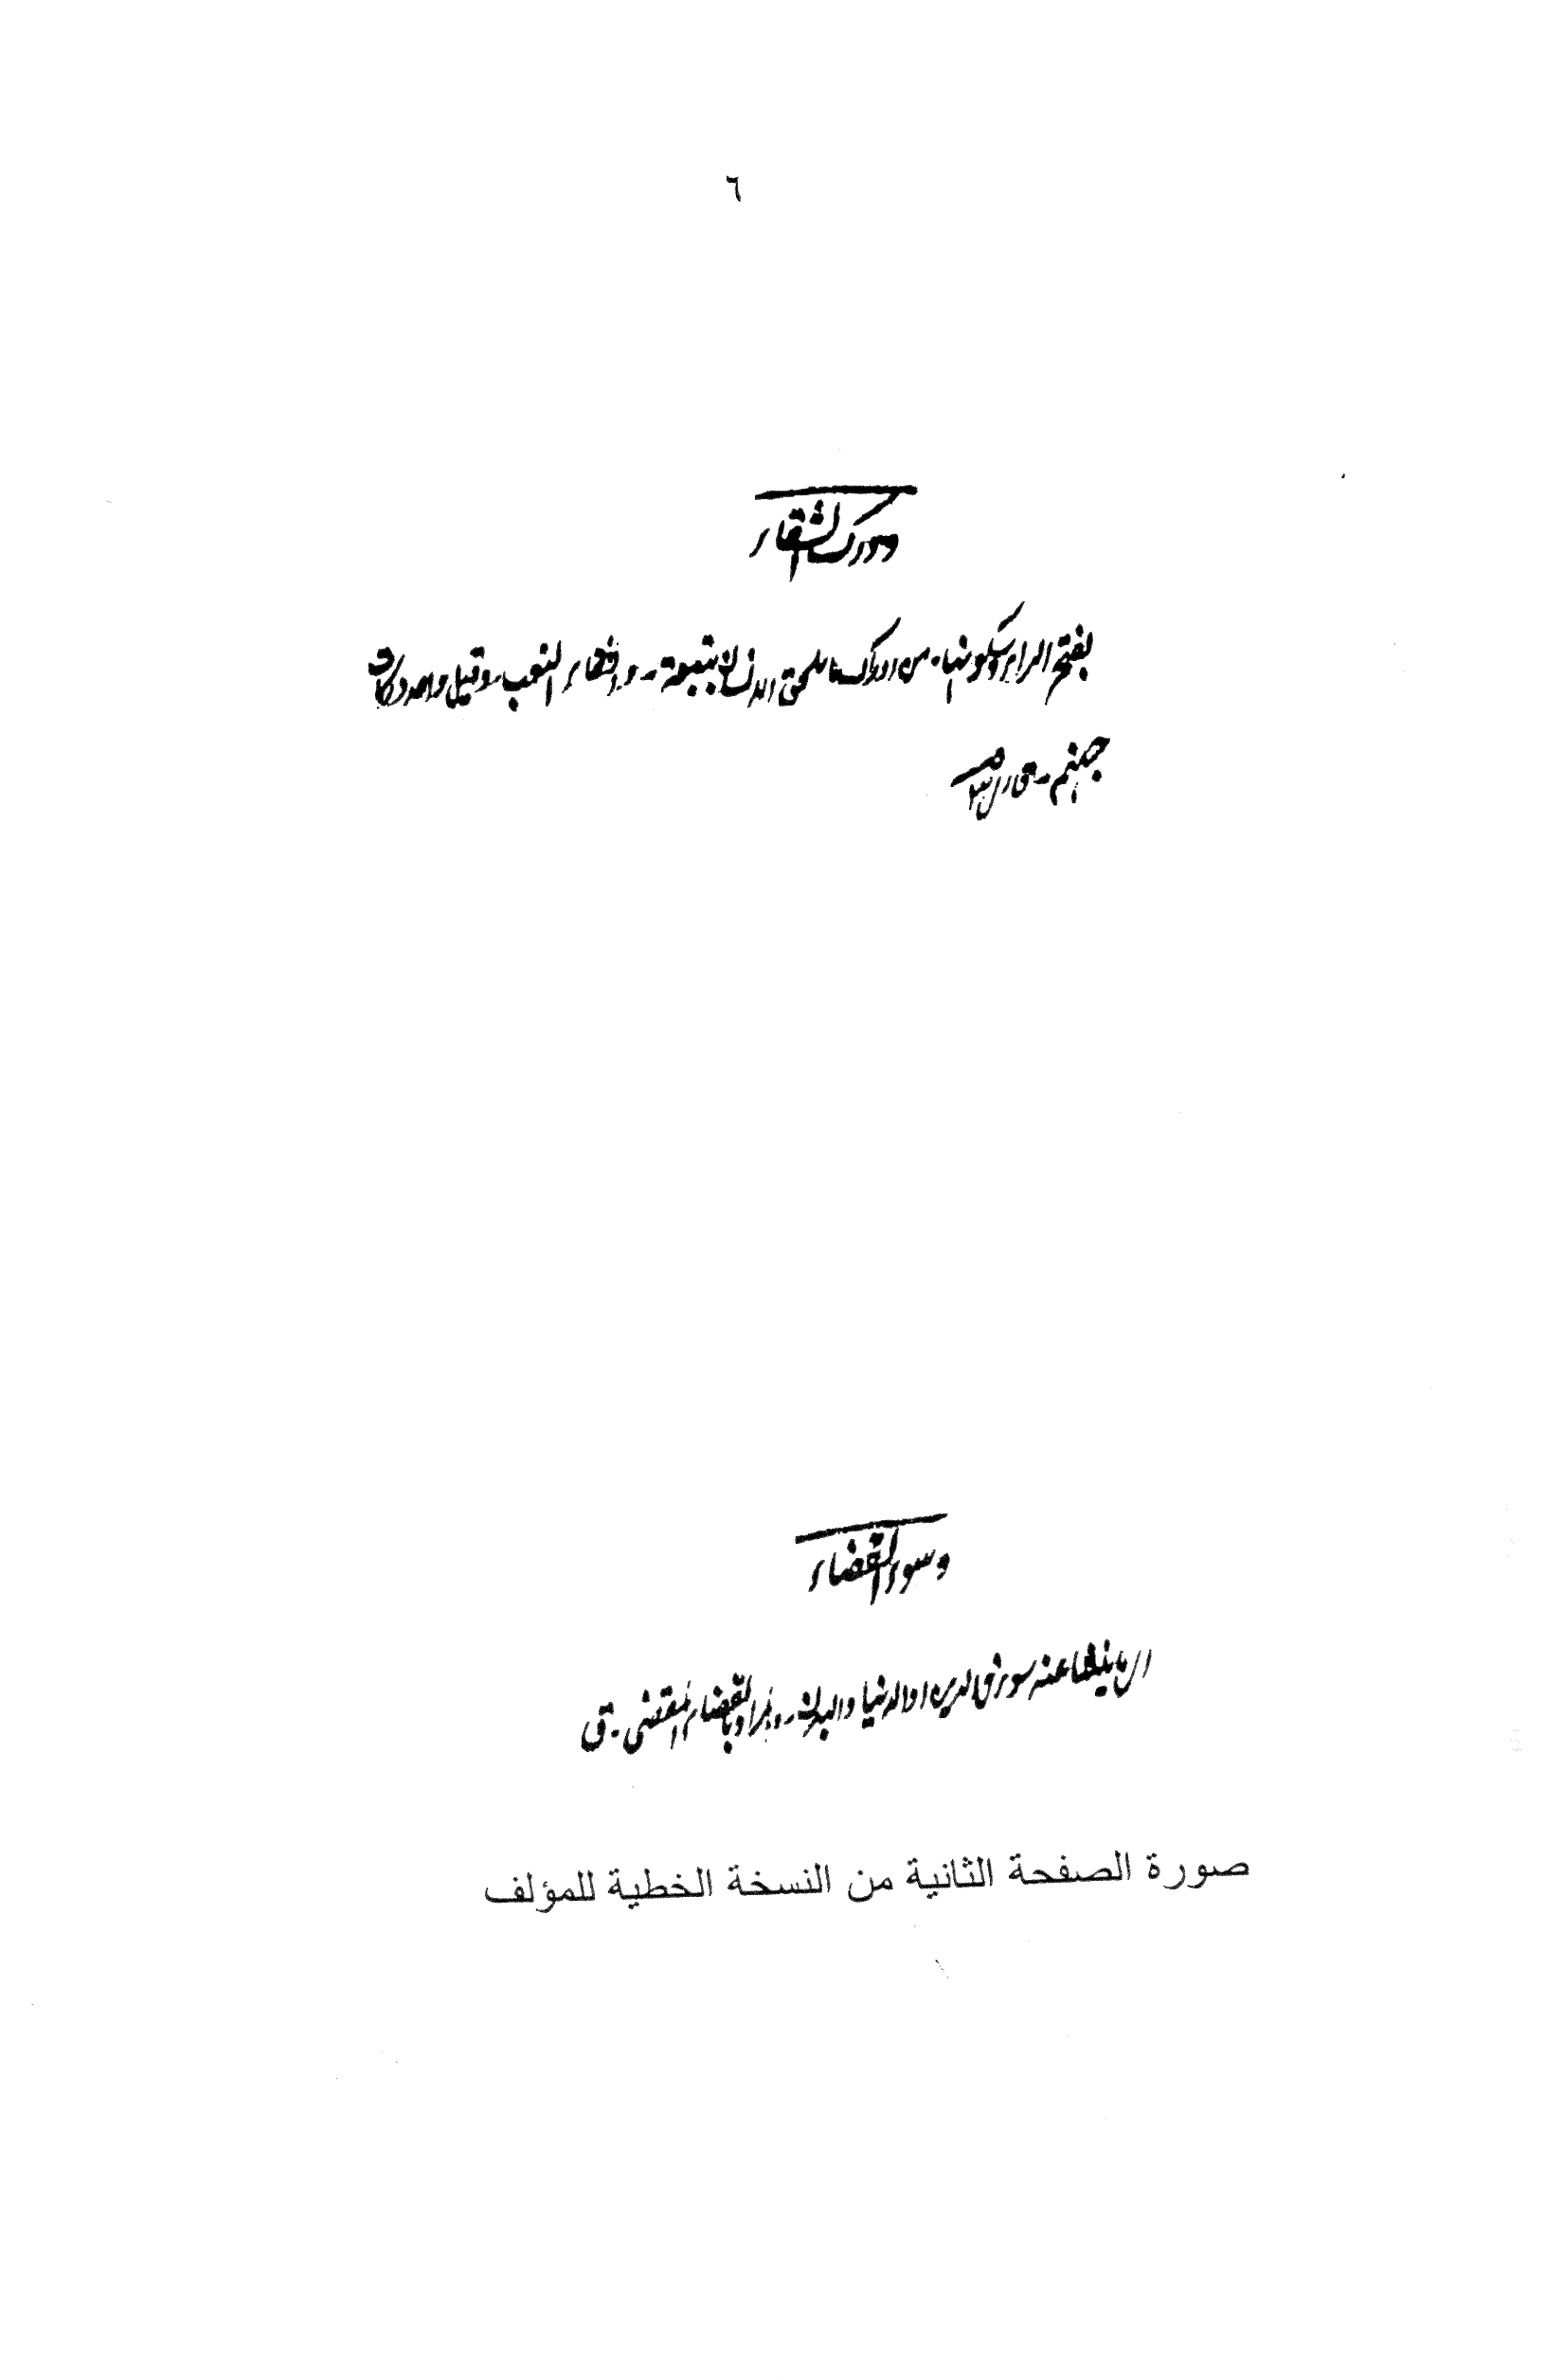 ٦
ودرك الشقاء
بفتح الراء وسكونها. من ادراك ما يلحق الانسان لا بتبعة - والشقاء التعب - وقيل واحد دركات
جهنم - ق
وسوء القضاء
اي ما ينشأ عنه سوء في الدين او الدنيا والبدن - والمراد بالقضاء المقضي - ق
صورة الصفحة الثانية من النسخة الخطية للمؤلف